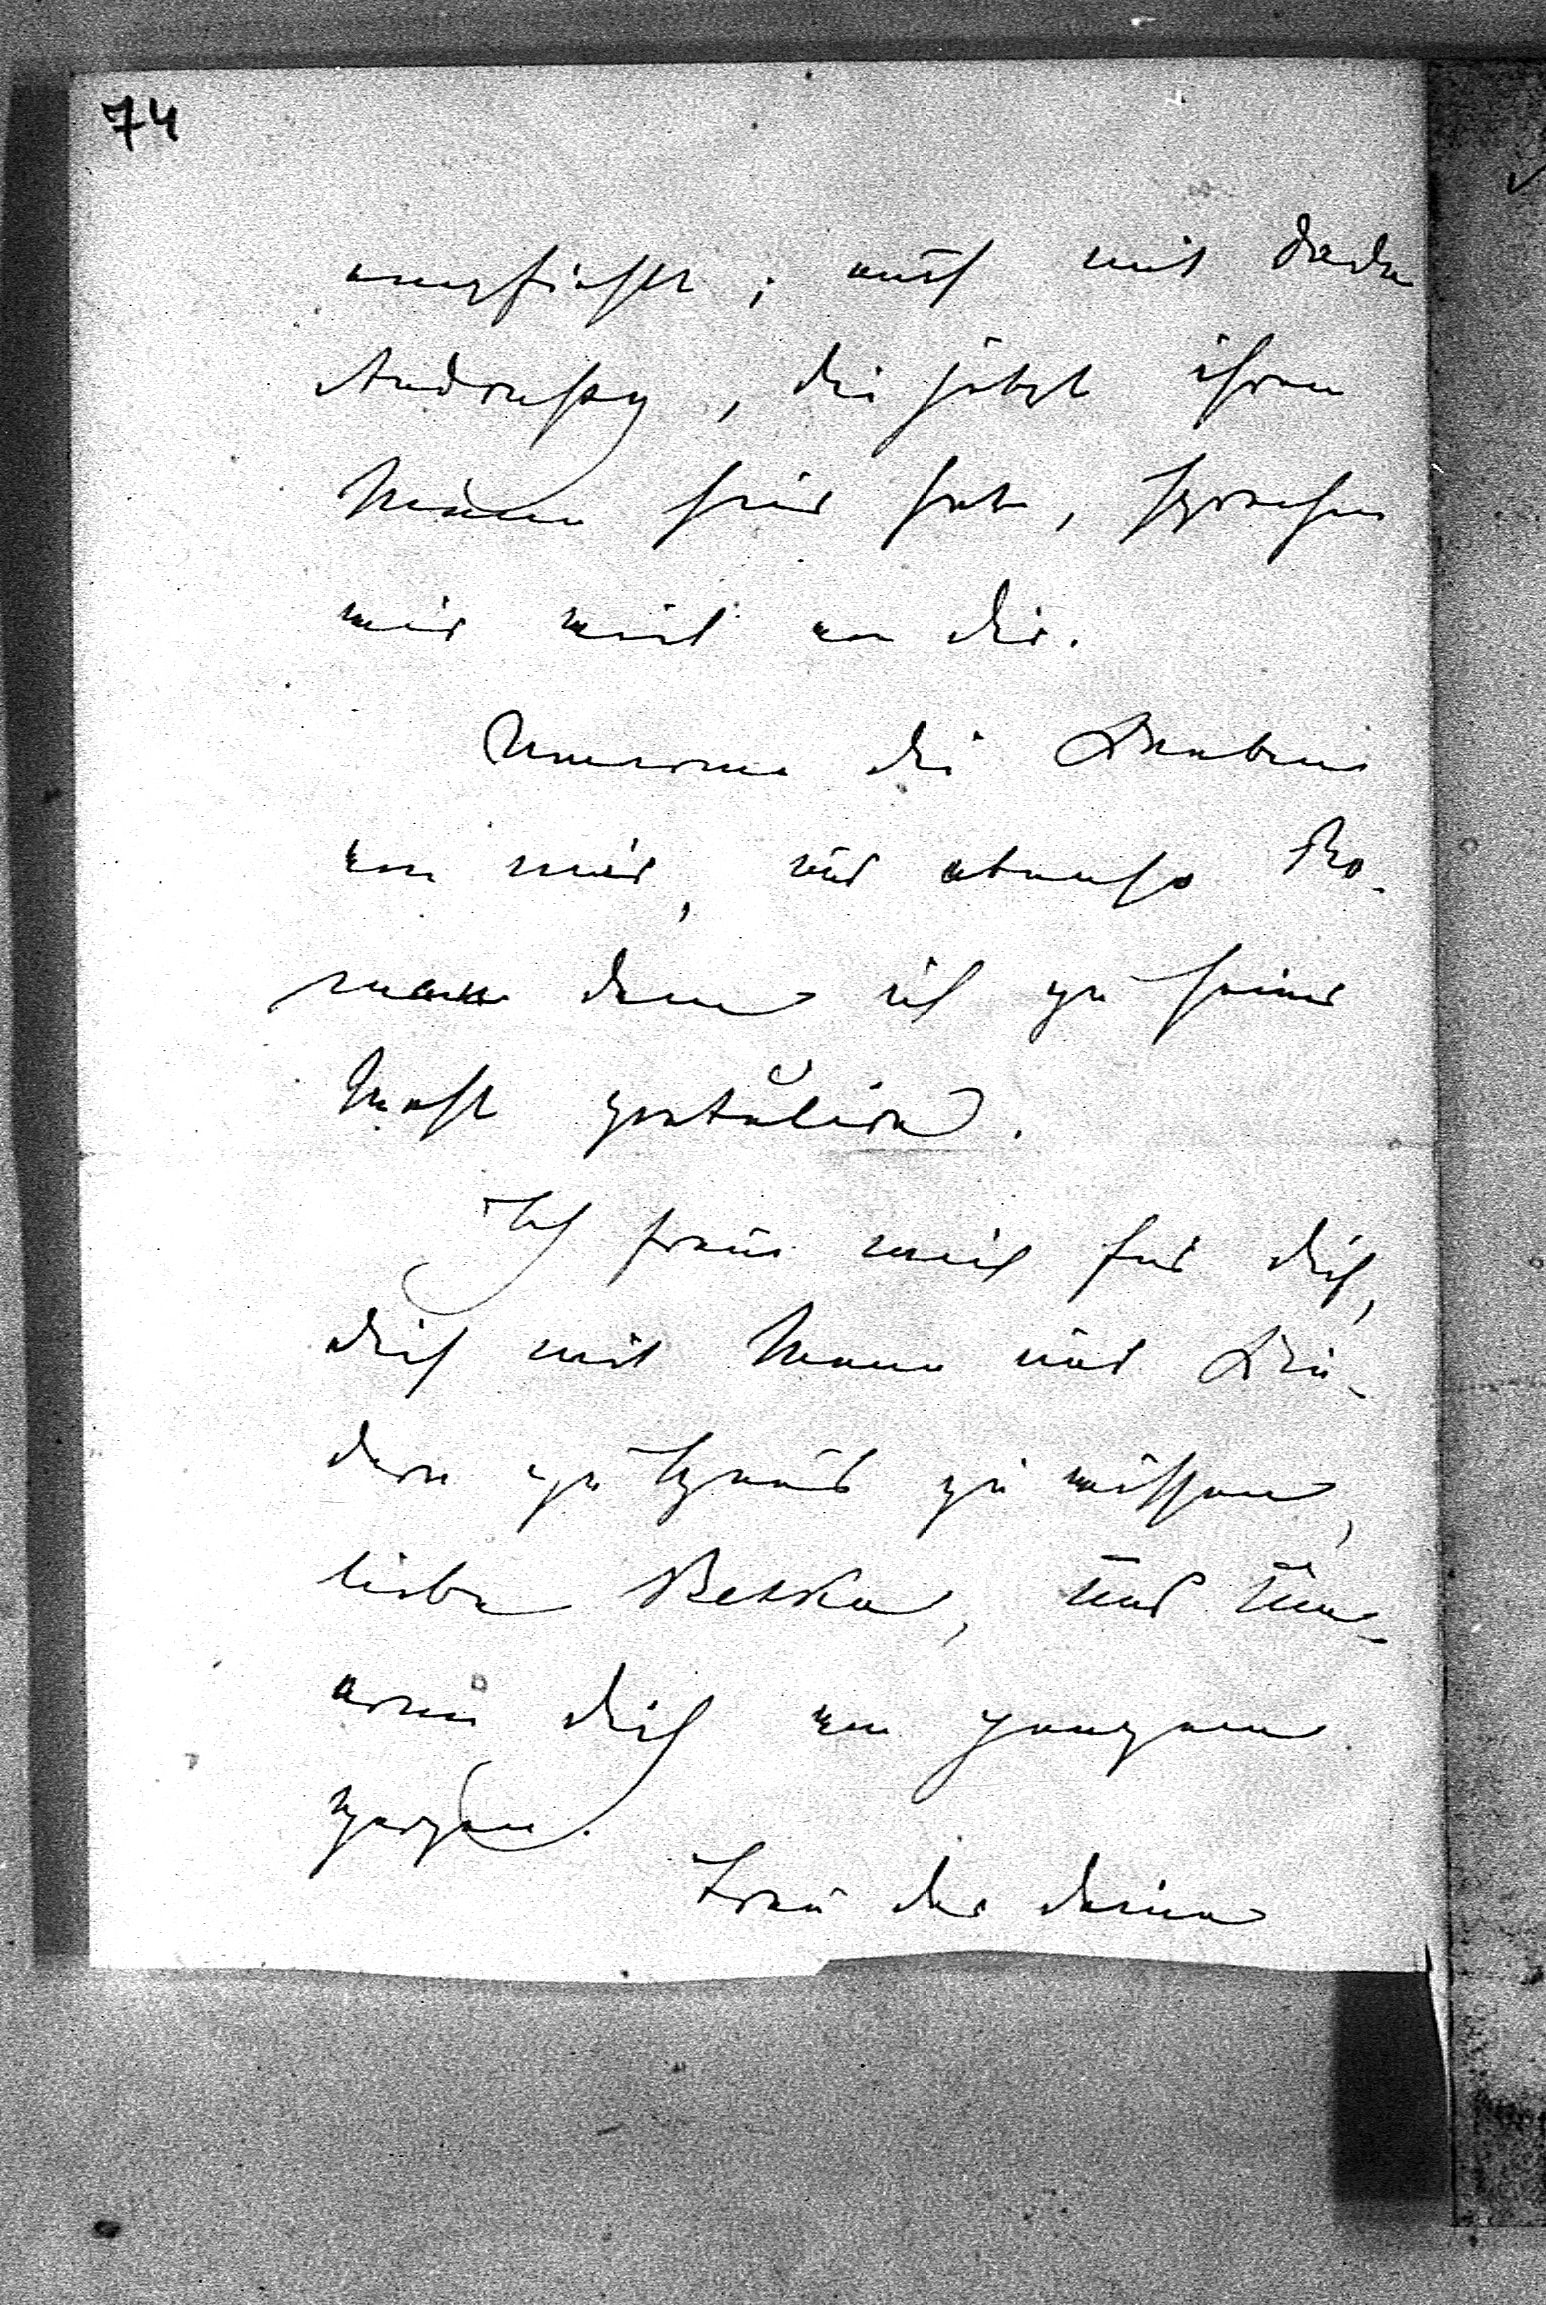 74
empfiehlt; auch mit Dada
Andrassy, die jetzt ihren
Mann hier hat, sprachen
wir viel von dir.
Umarme die Knaben
von mir, und ebenso Ro-
man dem ich zu seiner
Wahl gratulire.
Ich freue mich für dich,
dich mit Mann und Kin-
dern zu Haus zu wissen,
liebe Betka, und um-
arme dich von ganzem
Herzen.
Treu der deine